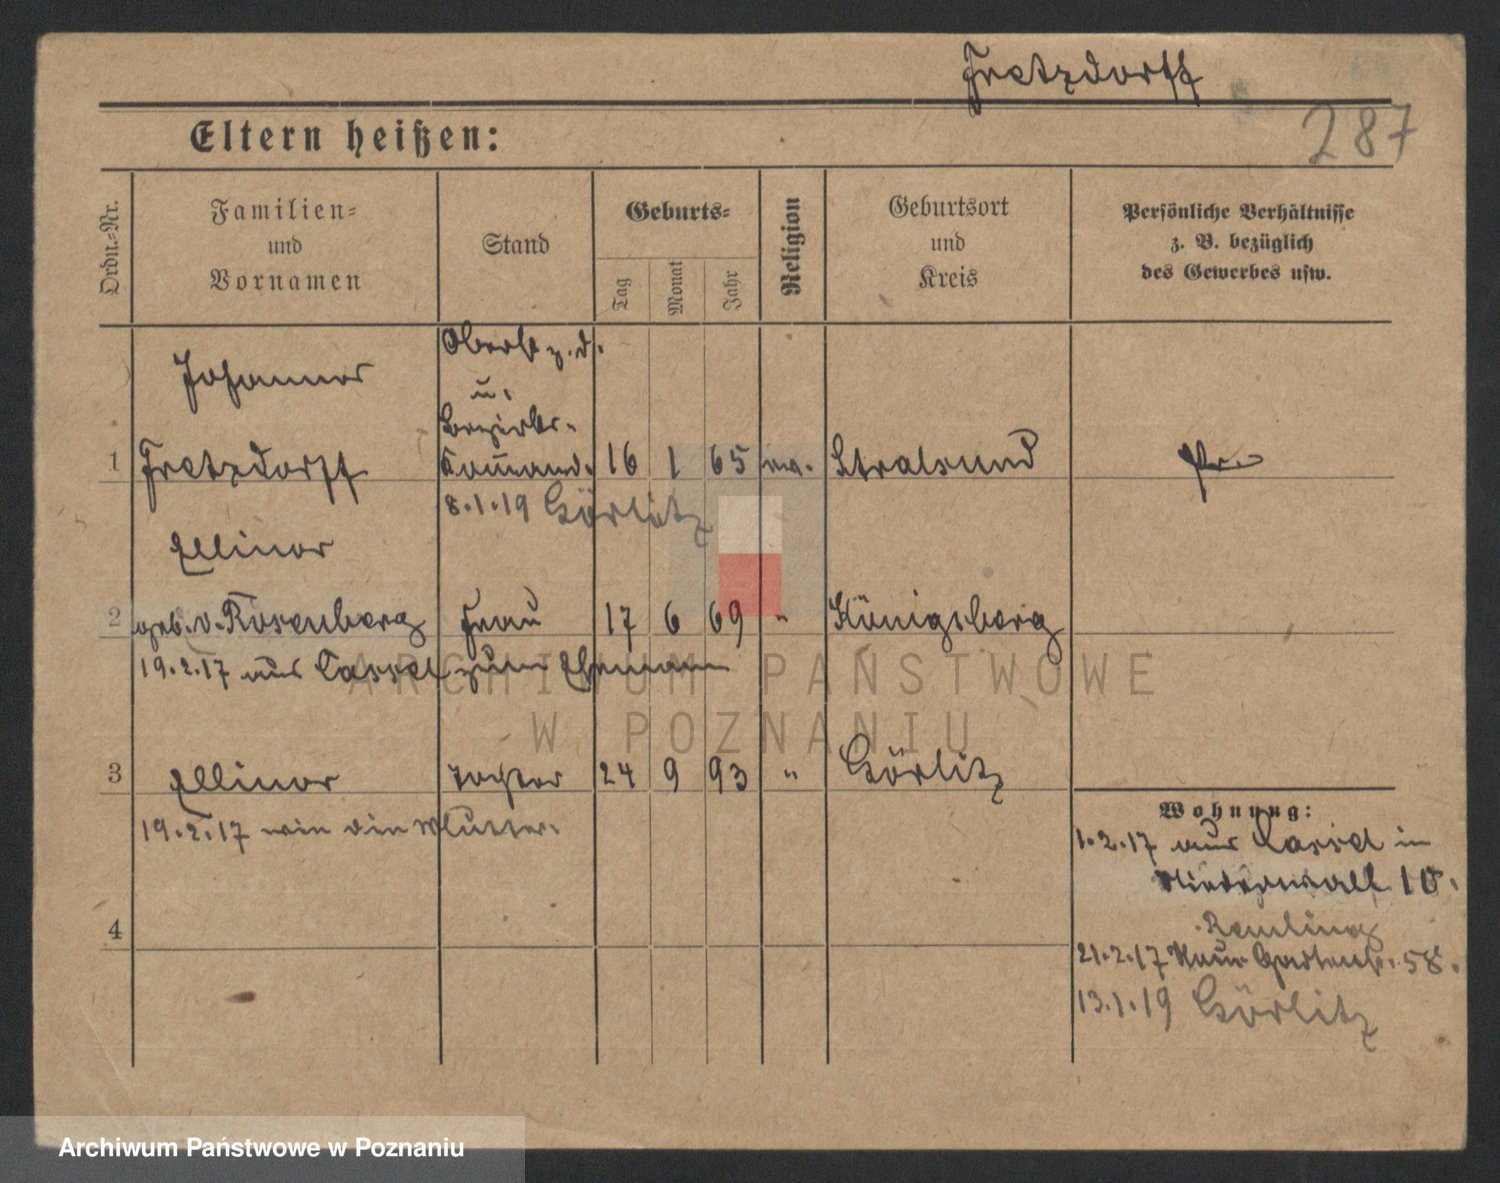 Fretzdorff
287
Eltern heißen:
Ordn.-Nr.
Familien-
und
Vornamen
Stand
Geburts-
Tag
Monat
Jahr
Religion
Geburtsort
und
Kreis
Persönliche Verhältnisse
z. B. bezüglich
des Gewerbes usw.
Johannes
Oberst z. d.
u.
Bezirks-
1 Fretzdorff Komand. 16 1 65 ev. Stralsund Pr.
8.1.19 Görlitz
Ellinor
2 geb. v. Rosenberg Frau 17 6 69 " Königsberg
19.2.17 aus Cassel zum Ehemann
3 Ellinor Tochter 24 9 93 " Görlitz
19.2.17 wie die Mutter.
4
Wohnung:
1.2.17 aus Cassel in
Niederwall 10.
21.2.17 Neue Gartenstr. 58.
13.1.19 Görlitz
ARCHIWUM PAŃSTWOWE
W POZNANIU
Archiwum Państwowe w Poznaniu